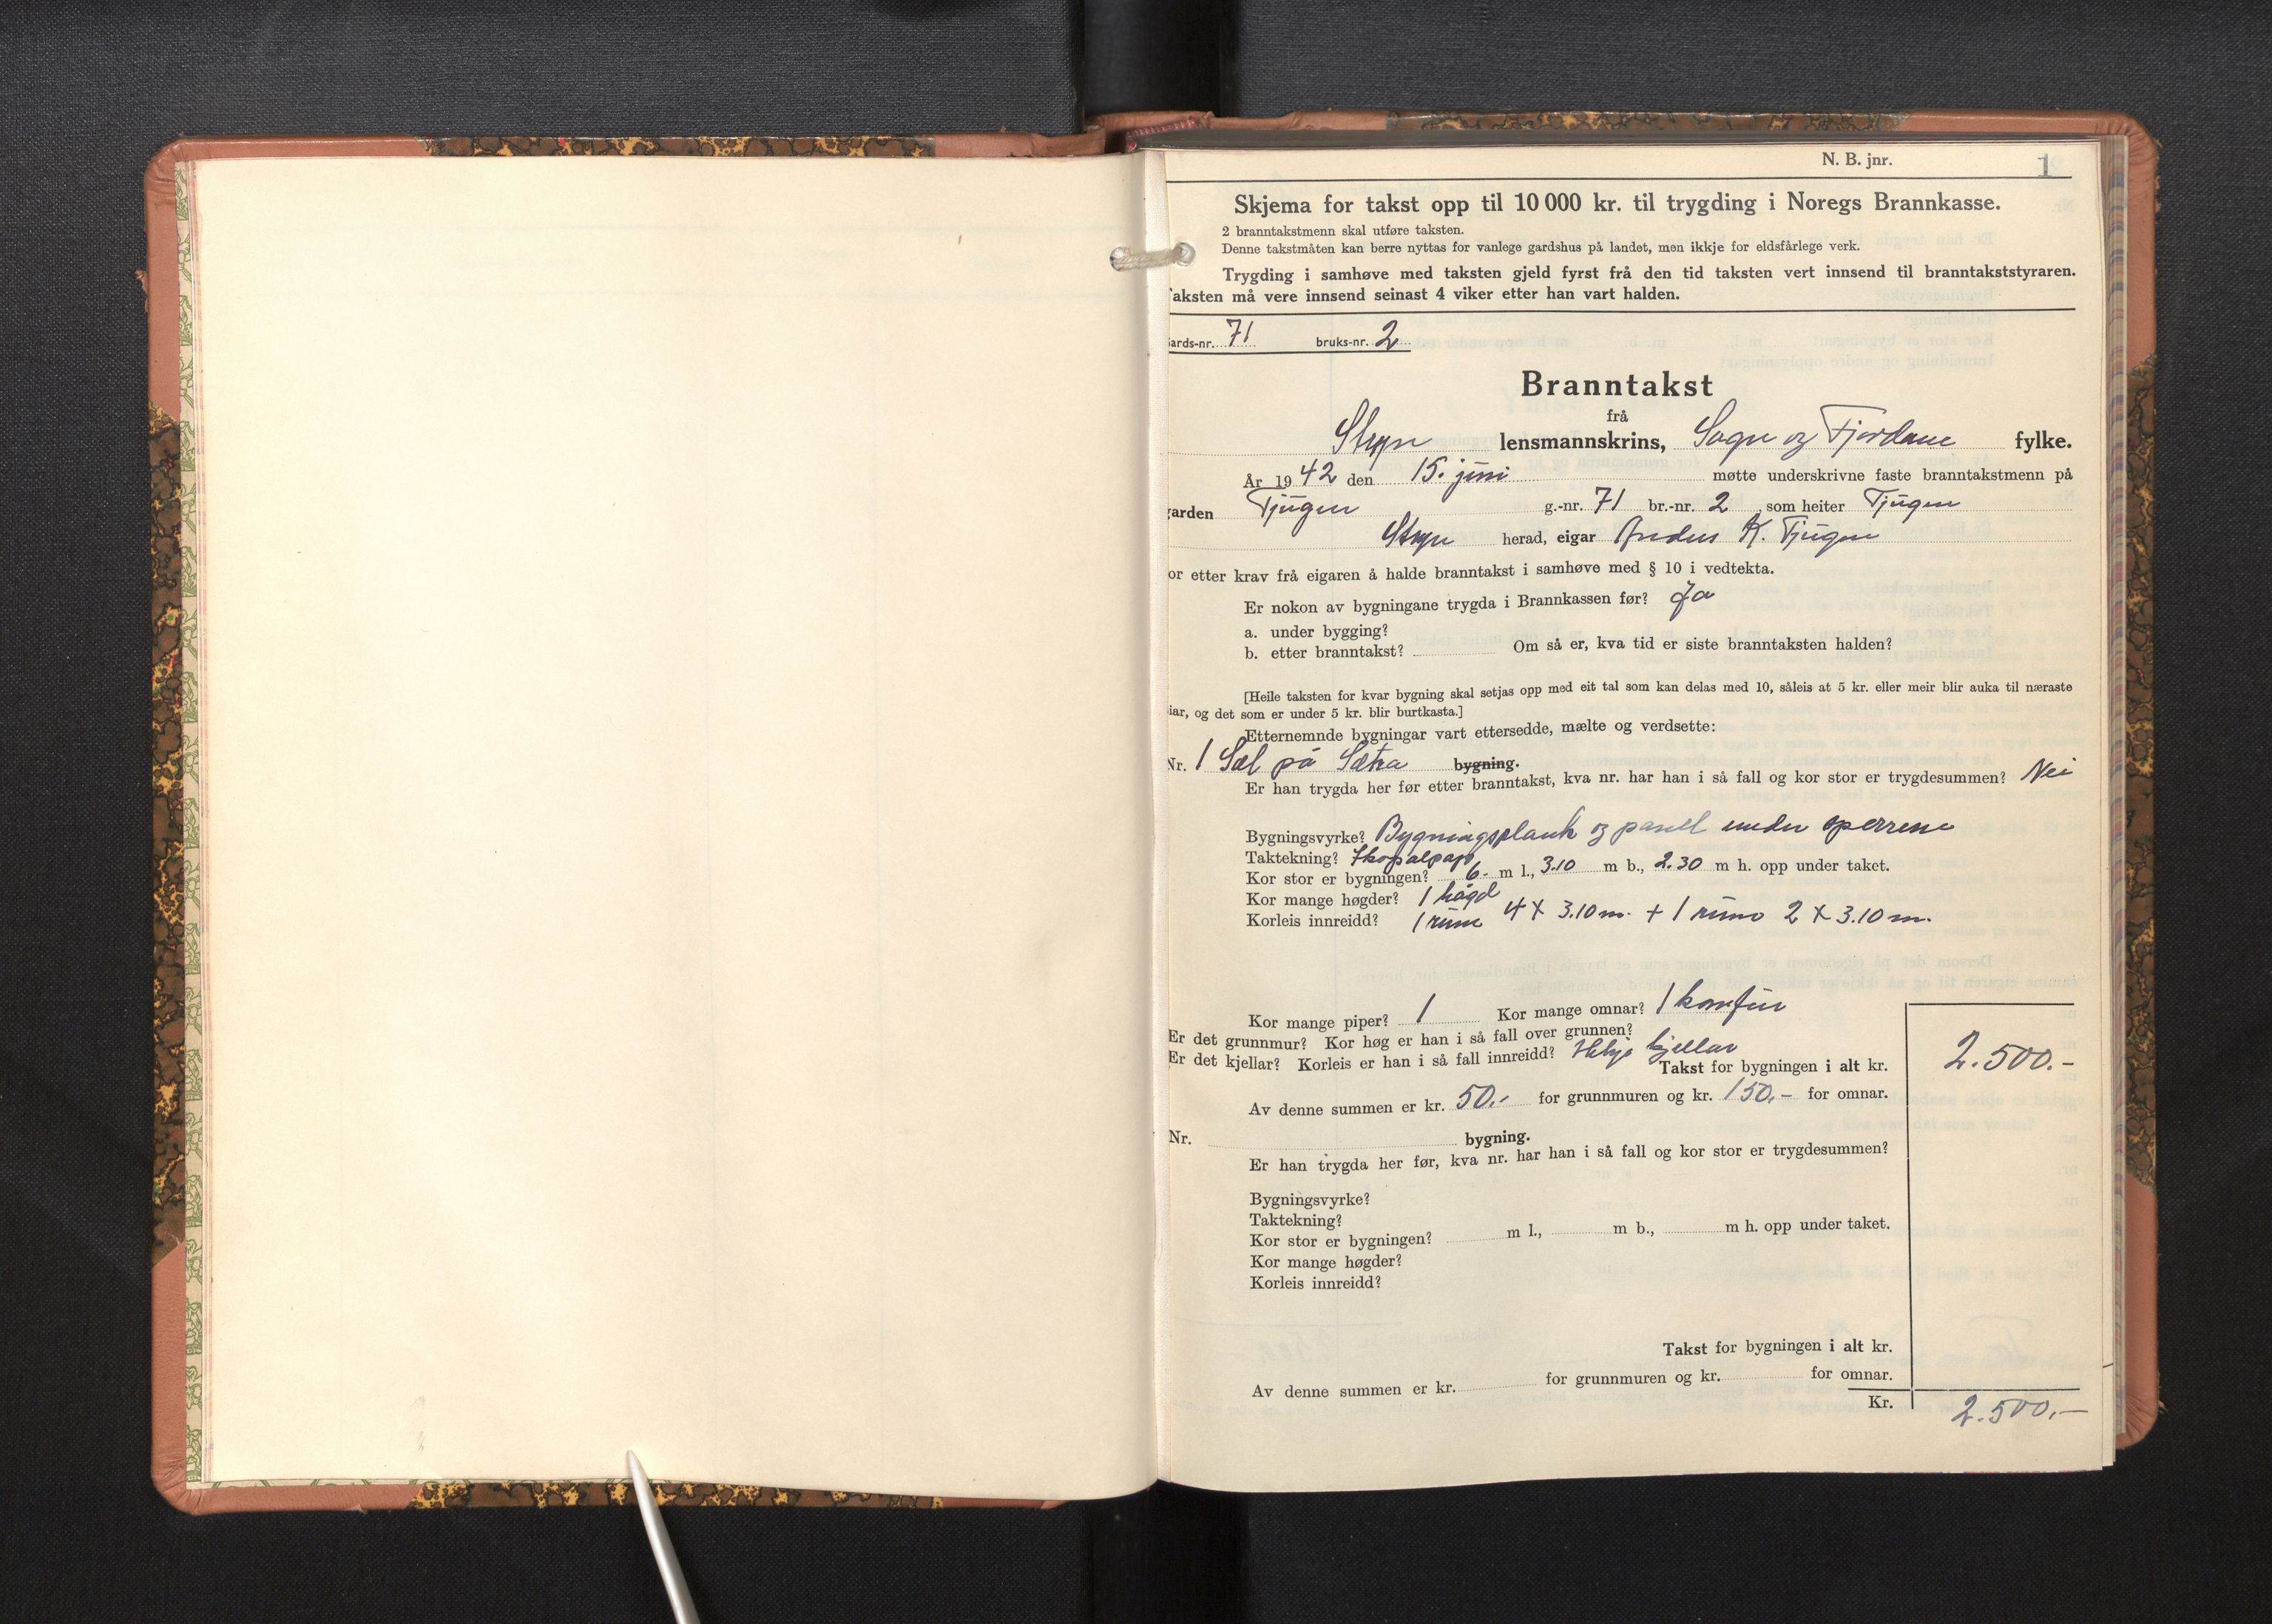 N. B. jnr. 1
Skjema for takst opp til 10 000 kr. til trygding i Noregs Brannkasse.
2 branntakstmenn skal utføre taksten.
Denne takstmåten kan berre nyttas for vanlege gardshus på landet, men ikkje for eldsfårlege verk.
Trygding i samhøve med taksten gjeld fyrst frå den tid taksten vert innsend til branntakststyraren.
aksten må vere innsend seinast 4 viker etter han vart halden.
ards-nr. 71 bruks-nr. 2
Branntakst
frå
Stryn lensmannskrins, Sogn og Fjordane fylke.
År 1942 den 15. juni møtte underskrivne faste branntakstmenn på
garden Tjugen g.-nr. 71 br.-nr. 2 som heiter Tjugen
Stryn herad, eigar Anders K. Tjugen
or etter krav frå eigaren å halde branntakst i samhøve med § 10 i vedtekta.
Er nokon av bygningane trygda i Brannkassen før? Ja
a. under bygging?
b. etter branntakst? Om så er, kva tid er siste branntaksten halden?
[Heile taksten for kvar bygning skal setjas opp med eit tal som kan delas med 10, såleis at 5 kr. eller meir blir auka til næraste
iar, og det som er under 5 kr. blir burtkasta.]
Etternemnde bygningar vart ettersedde, mælte og verdsette:
Nr. 1 Sel på Sætra bygning.
Er han trygda her før etter branntakst, kva nr. har han i så fall og kor stor er trygdesummen? Nei
Bygningsvyrke? Bygningsplank og panel under sperrene
Taktekning?
Kor stor er bygningen? 6.- m l., 3.10 m b., 2.30 m h. opp under taket.
Kor mange høgder? 1 høgd
Korleis innreidd? 1 rum 4 x 3.10 m. + 1 rum 2 x 3.10 m.
Kor mange piper? 1 Kor mange omnar? 1 komfur
Er det grunnmur? Kor høg er han i så fall over grunnen?
Er det kjellar? Korleis er han i så fall innreidd? Ikkje kjellar
Takst for bygningen i alt kr. 2.500.-
Av denne summen er kr. 50.- for grunnmuren og kr. 150.- for omnar.
Nr. bygning.
Er han trygda her før, kva nr. har han i så fall og kor stor er trygdesummen?
Bygningsvyrke?
Taktekning?
Kor stor er bygningen? m l., m b., m h. opp under taket.
Kor mange høgder?
Korleis innreidd?
Takst for bygningen i alt kr.
Av denne summen er kr. for grunnmuren og kr. for omnar.
Kr. 2.500,-